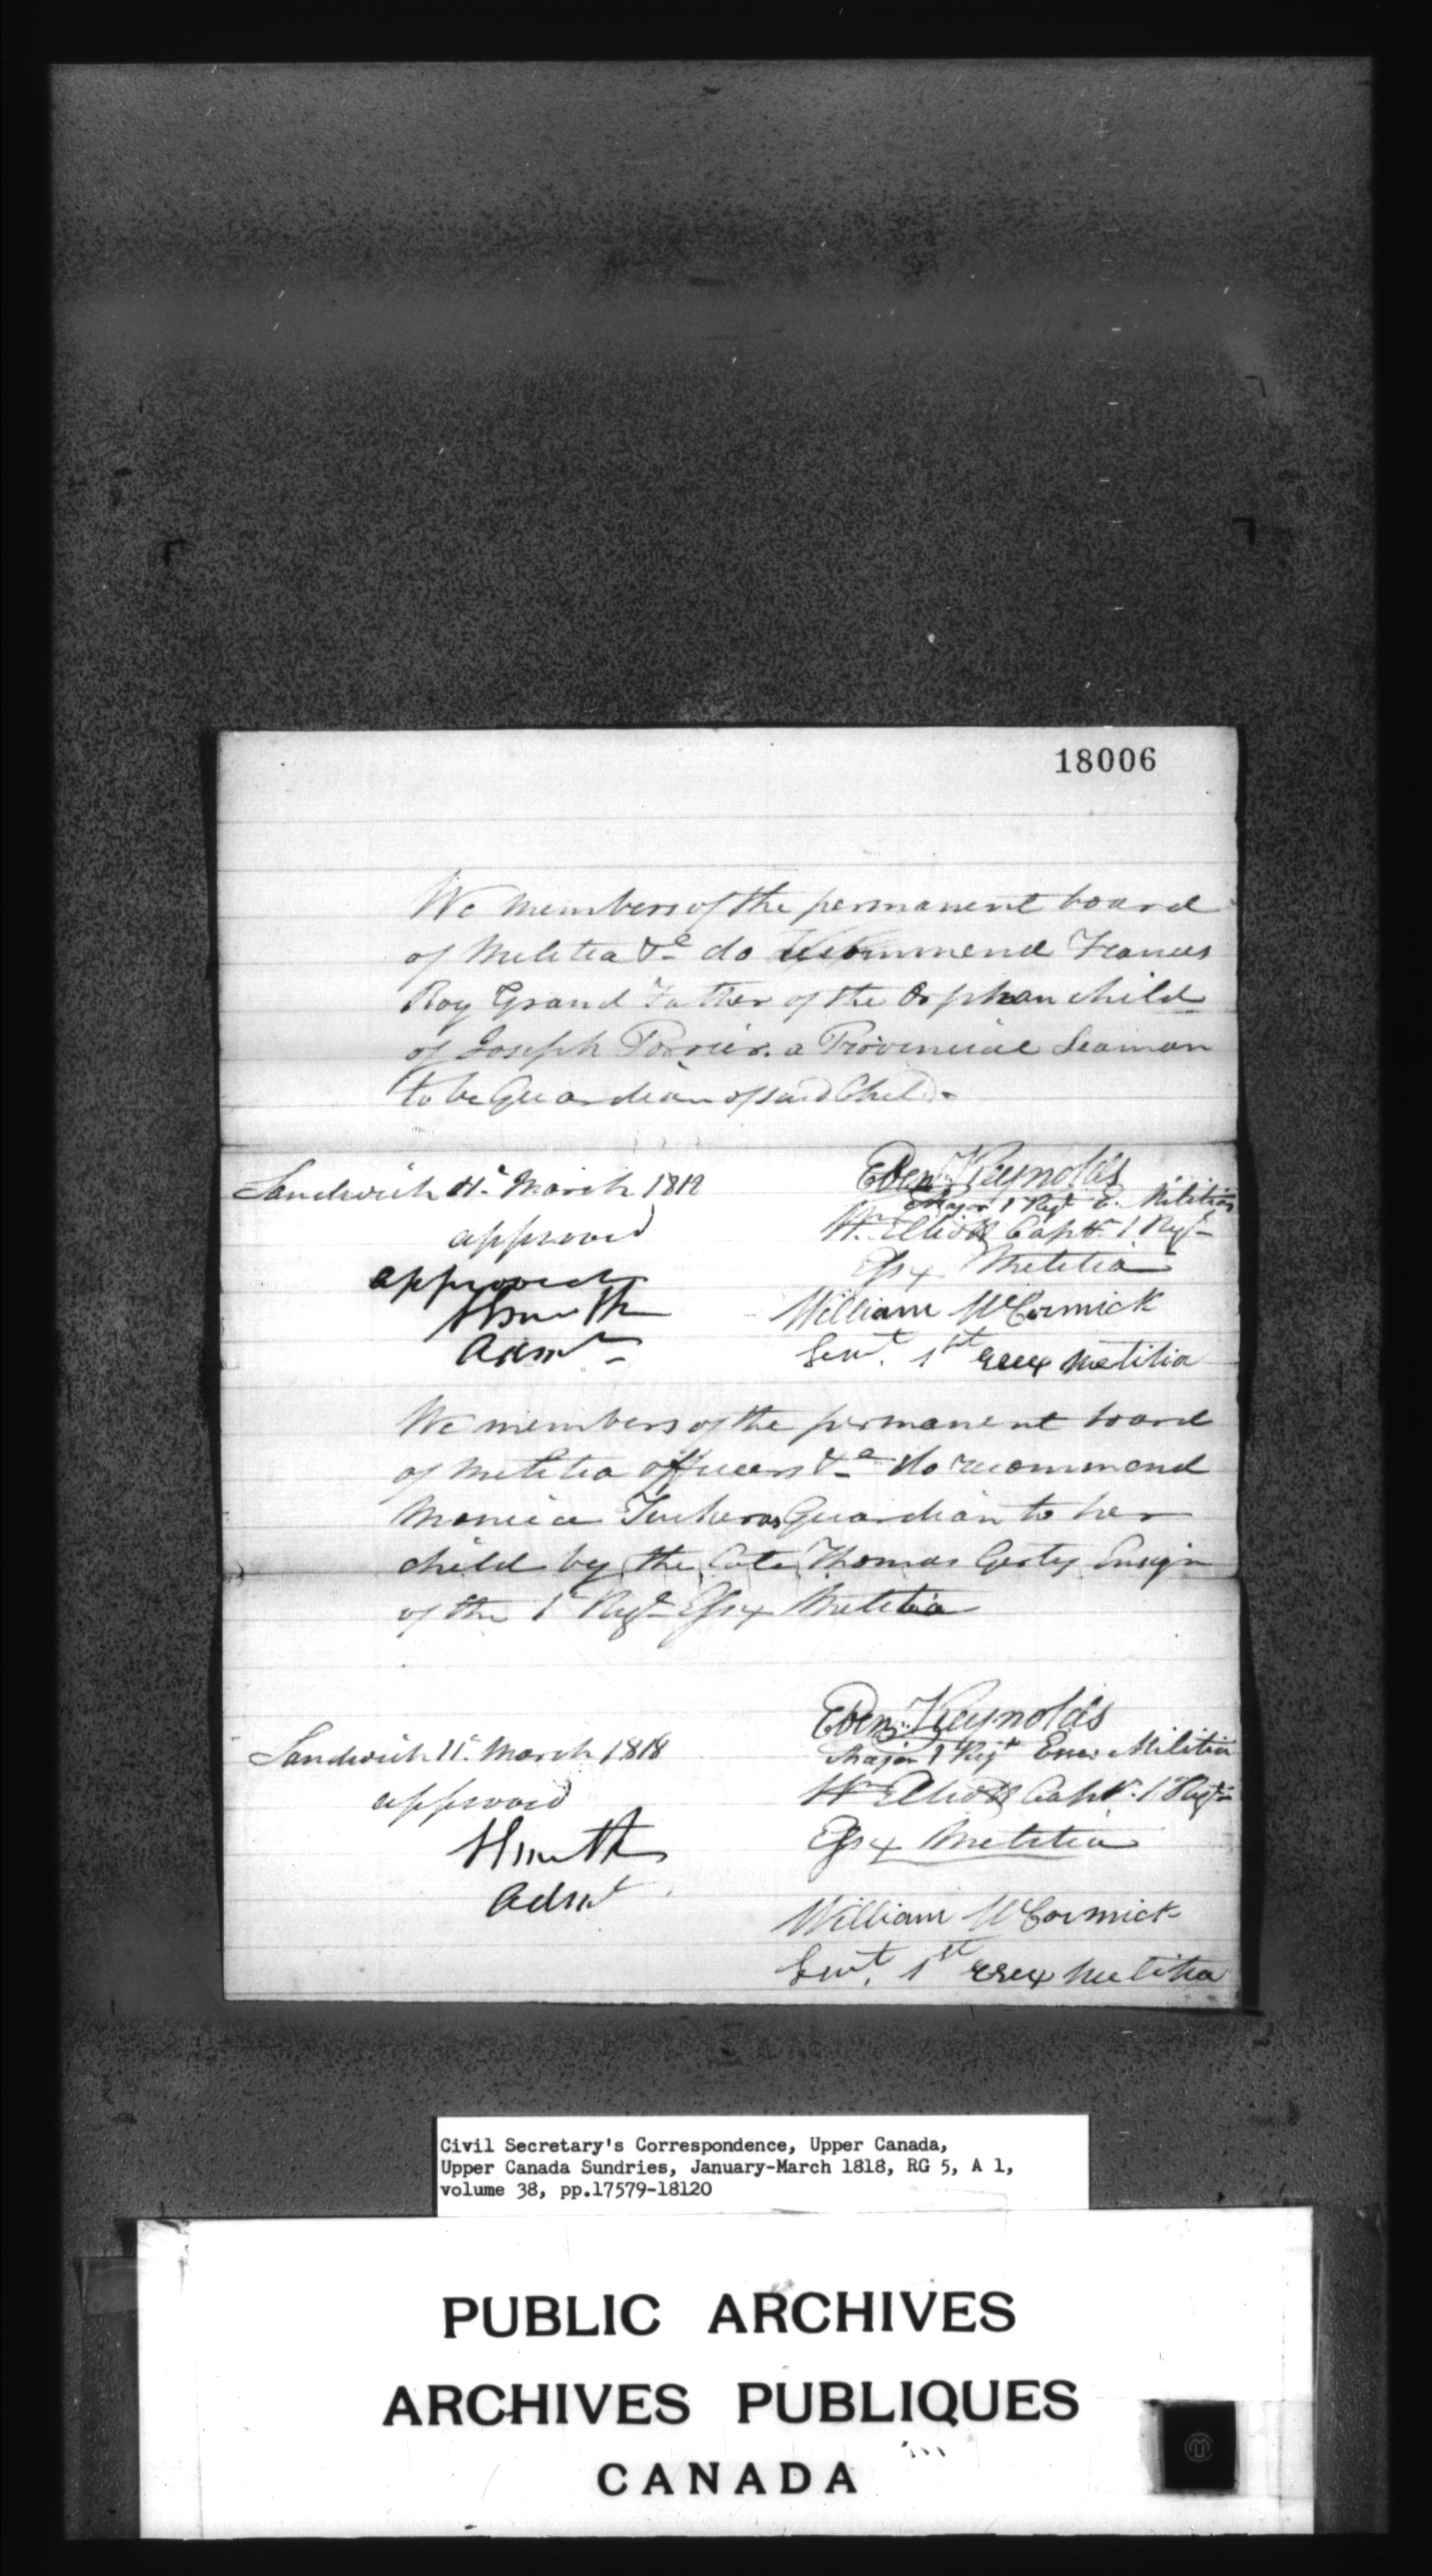 18006
We Members of the permanent board
of Militia &c do recommend Frances
Roy Grand Father of the Orphan child
of Joseph Poirier. a Provincial Seaman
to be Guardian of said Child.
Sandwich 11t. March 1818
approved
approved
Adm<sup>r</sup>
Eben. Reynolds
Major 1 Regt E. Militia
Wm Elliott Capt. 1 Regt
Essex Militia
William McCormick
Lieut. 1st Essex Militia
We members of the permanent board
of Militia officers &c do recommend
Monica as Guardian to her
child by the late Thomas Girty Ensign
of the 1t Regt Essex Militia
Sandwich 11t. March 1818
approved
SSmith
Admt
Eben. Reynolds
Major 1 Regt Essex Militia
Wm Elliott Capt. 1 Regt
Essex Militia
William McCormick
Lieut. 1st Essex Militia
Civil Secretary's Correspondence, Upper Canada,
Upper Canada Sundries, January-March 1818, RG 5, A 1,
volume 38, pp.17579-18120
PUBLIC ARCHIVES
ARCHIVES PUBLIQUES
CANADA